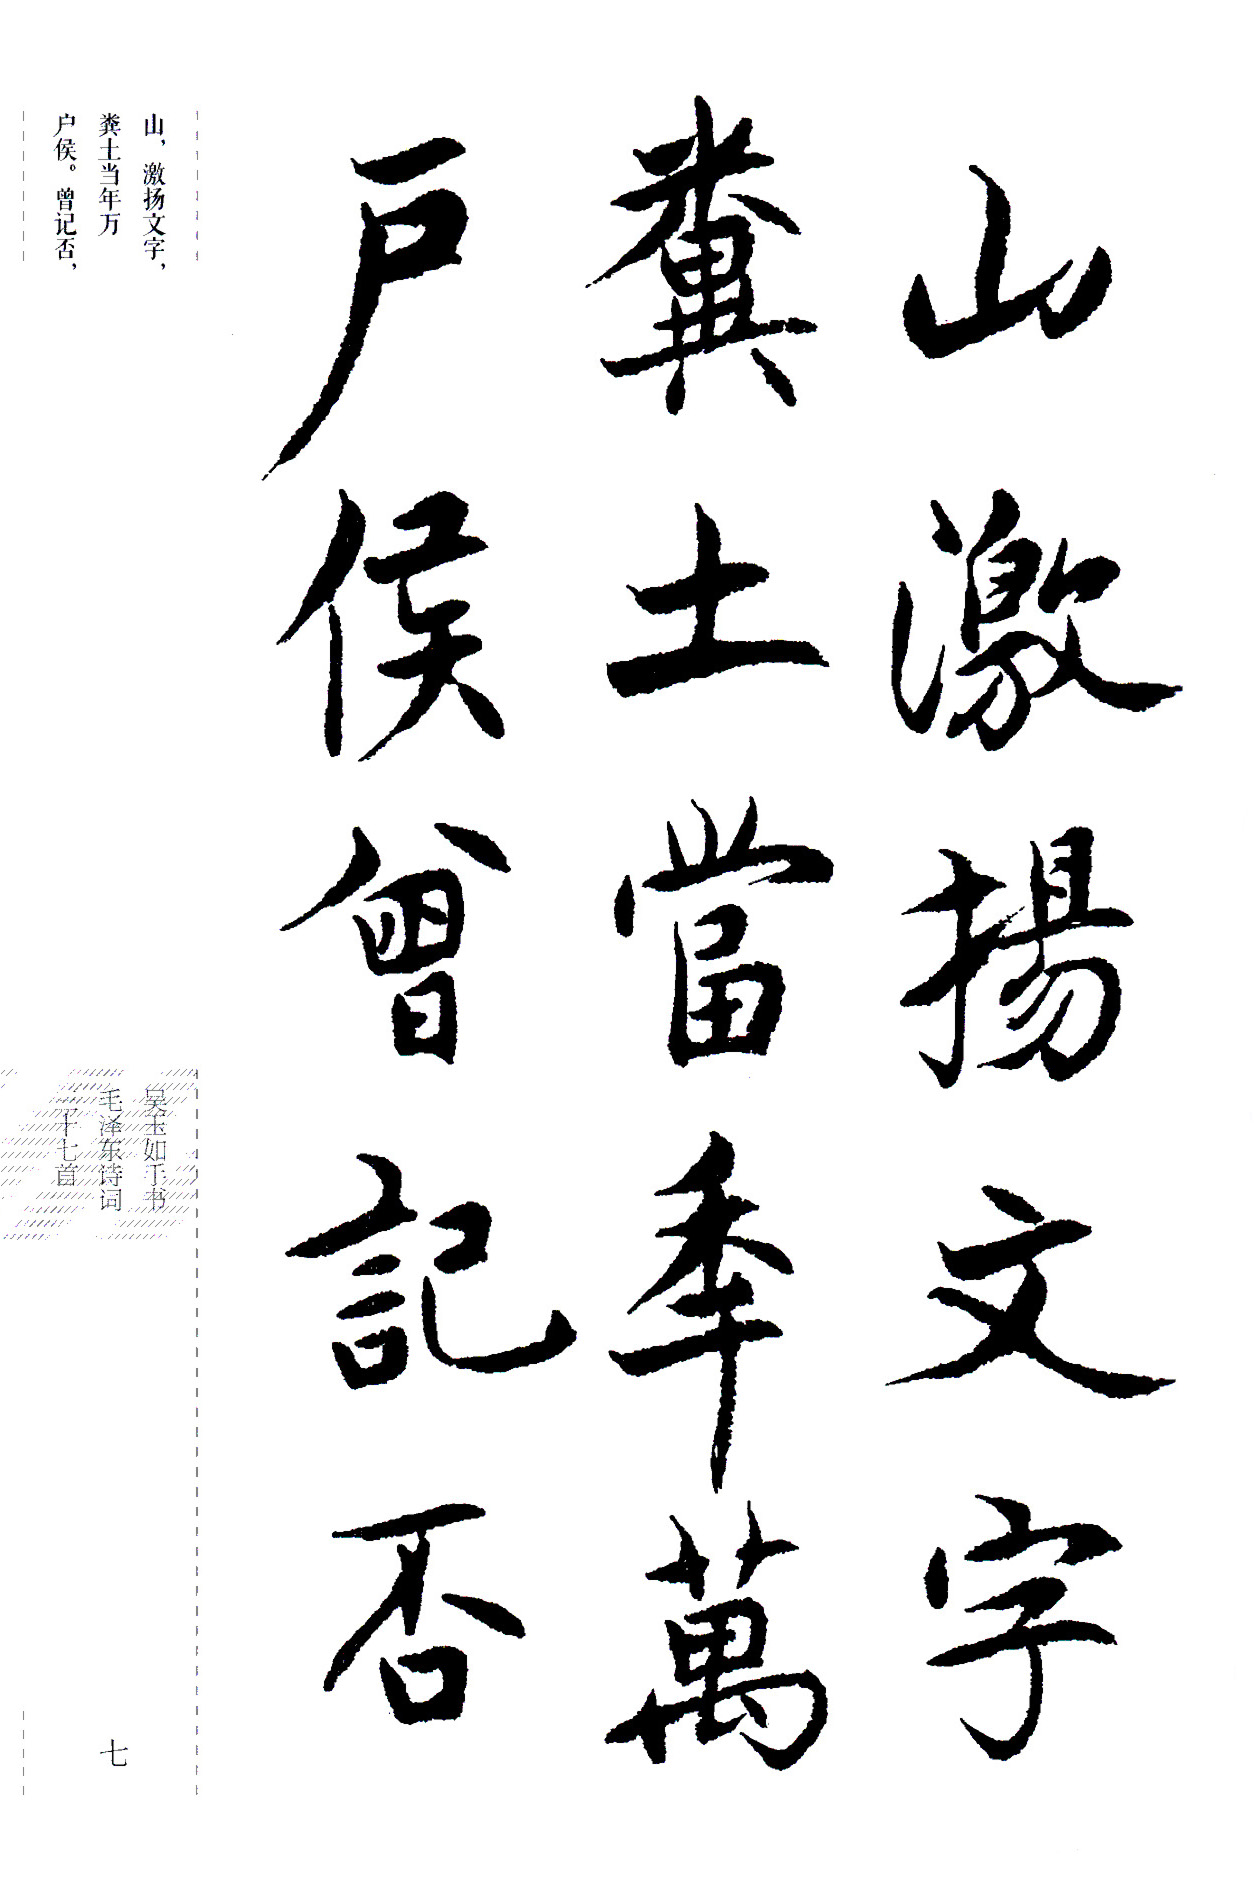 山激揚文字
糞土當年萬
戶侯曾記否
山，激扬文字，
粪土当年万
户侯。曾记否，
吴玉如手书
毛泽东诗词
三十七首
七